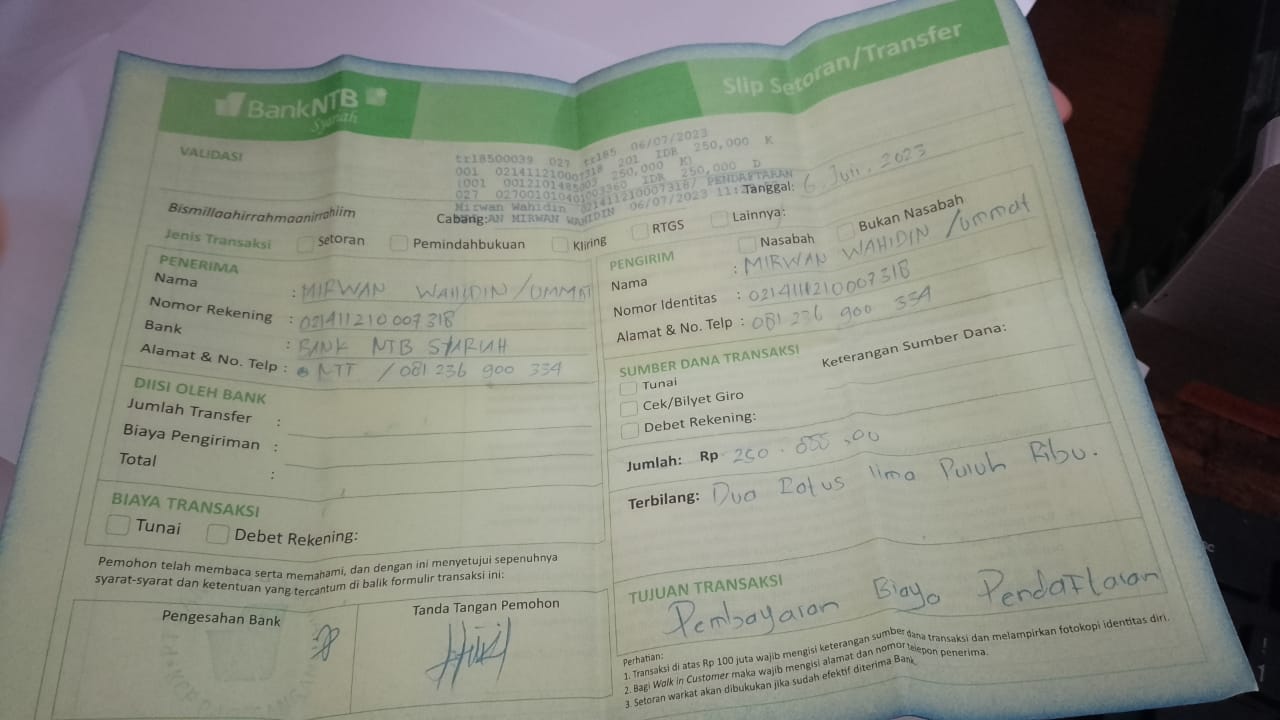 BankNTB
Syariah
Slip Setoran/Transfer
VALIDASI
tr18500039 027 tr185 06/07/2023
001 021411210007318 201 IDR 250,000 K
250,000 K)
IDR 250,000 D
Mirwan Wahidin 021411210007318/ PENDAFTARAN
AN MIRWAN WAHIDIN 06/07/2023
Tanggal: 6 Juli, 2023
Bismillaahirrahmaanirrahiim
Cabang:
Jenis Transaksi Setoran Pemindahbukuan Kliring RTGS Lainnya:
PENERIMA
Nama : MIRWAN WAHIDIN /UMMAT
Nomor Rekening : 021411210007318
Bank : BANK NTB SYARIAH
Alamat & No. Telp : NTT / 081 236 900 334
DIISI OLEH BANK
Jumlah Transfer :
Biaya Pengiriman :
Total :
BIAYA TRANSAKSI
Tunai Debet Rekening:
Pemohon telah membaca serta memahami, dan dengan ini menyetujui sepenuhnya
syarat-syarat dan ketentuan yang tercantum di balik formulir transaksi ini:
Pengesahan Bank
Tanda Tangan Pemohon
PENGIRIM Nasabah Bukan Nasabah
Nama : MIRWAN WAHIDIN /UMMAT
Nomor Identitas : 021411210007318
Alamat & No. Telp : 081 236 900 334
SUMBER DANA TRANSAKSI Keterangan Sumber Dana:
Tunai
Cek/Bilyet Giro
Debet Rekening:
Jumlah: Rp 250.000,00
Terbilang: Dua Ratus lima Puluh Ribu.
TUJUAN TRANSAKSI
Pembayaran Biaya Pendaftaran
Perhatian:
1. Transaksi di atas Rp 100 juta wajib mengisi keterangan sumber dana transaksi dan melampirkan fotokopi identitas diri.
2. Bagi Walk in Customer maka wajib mengisi alamat dan nomor telepon penerima.
3. Setoran warkat akan dibukukan jika sudah efektif diterima Bank.